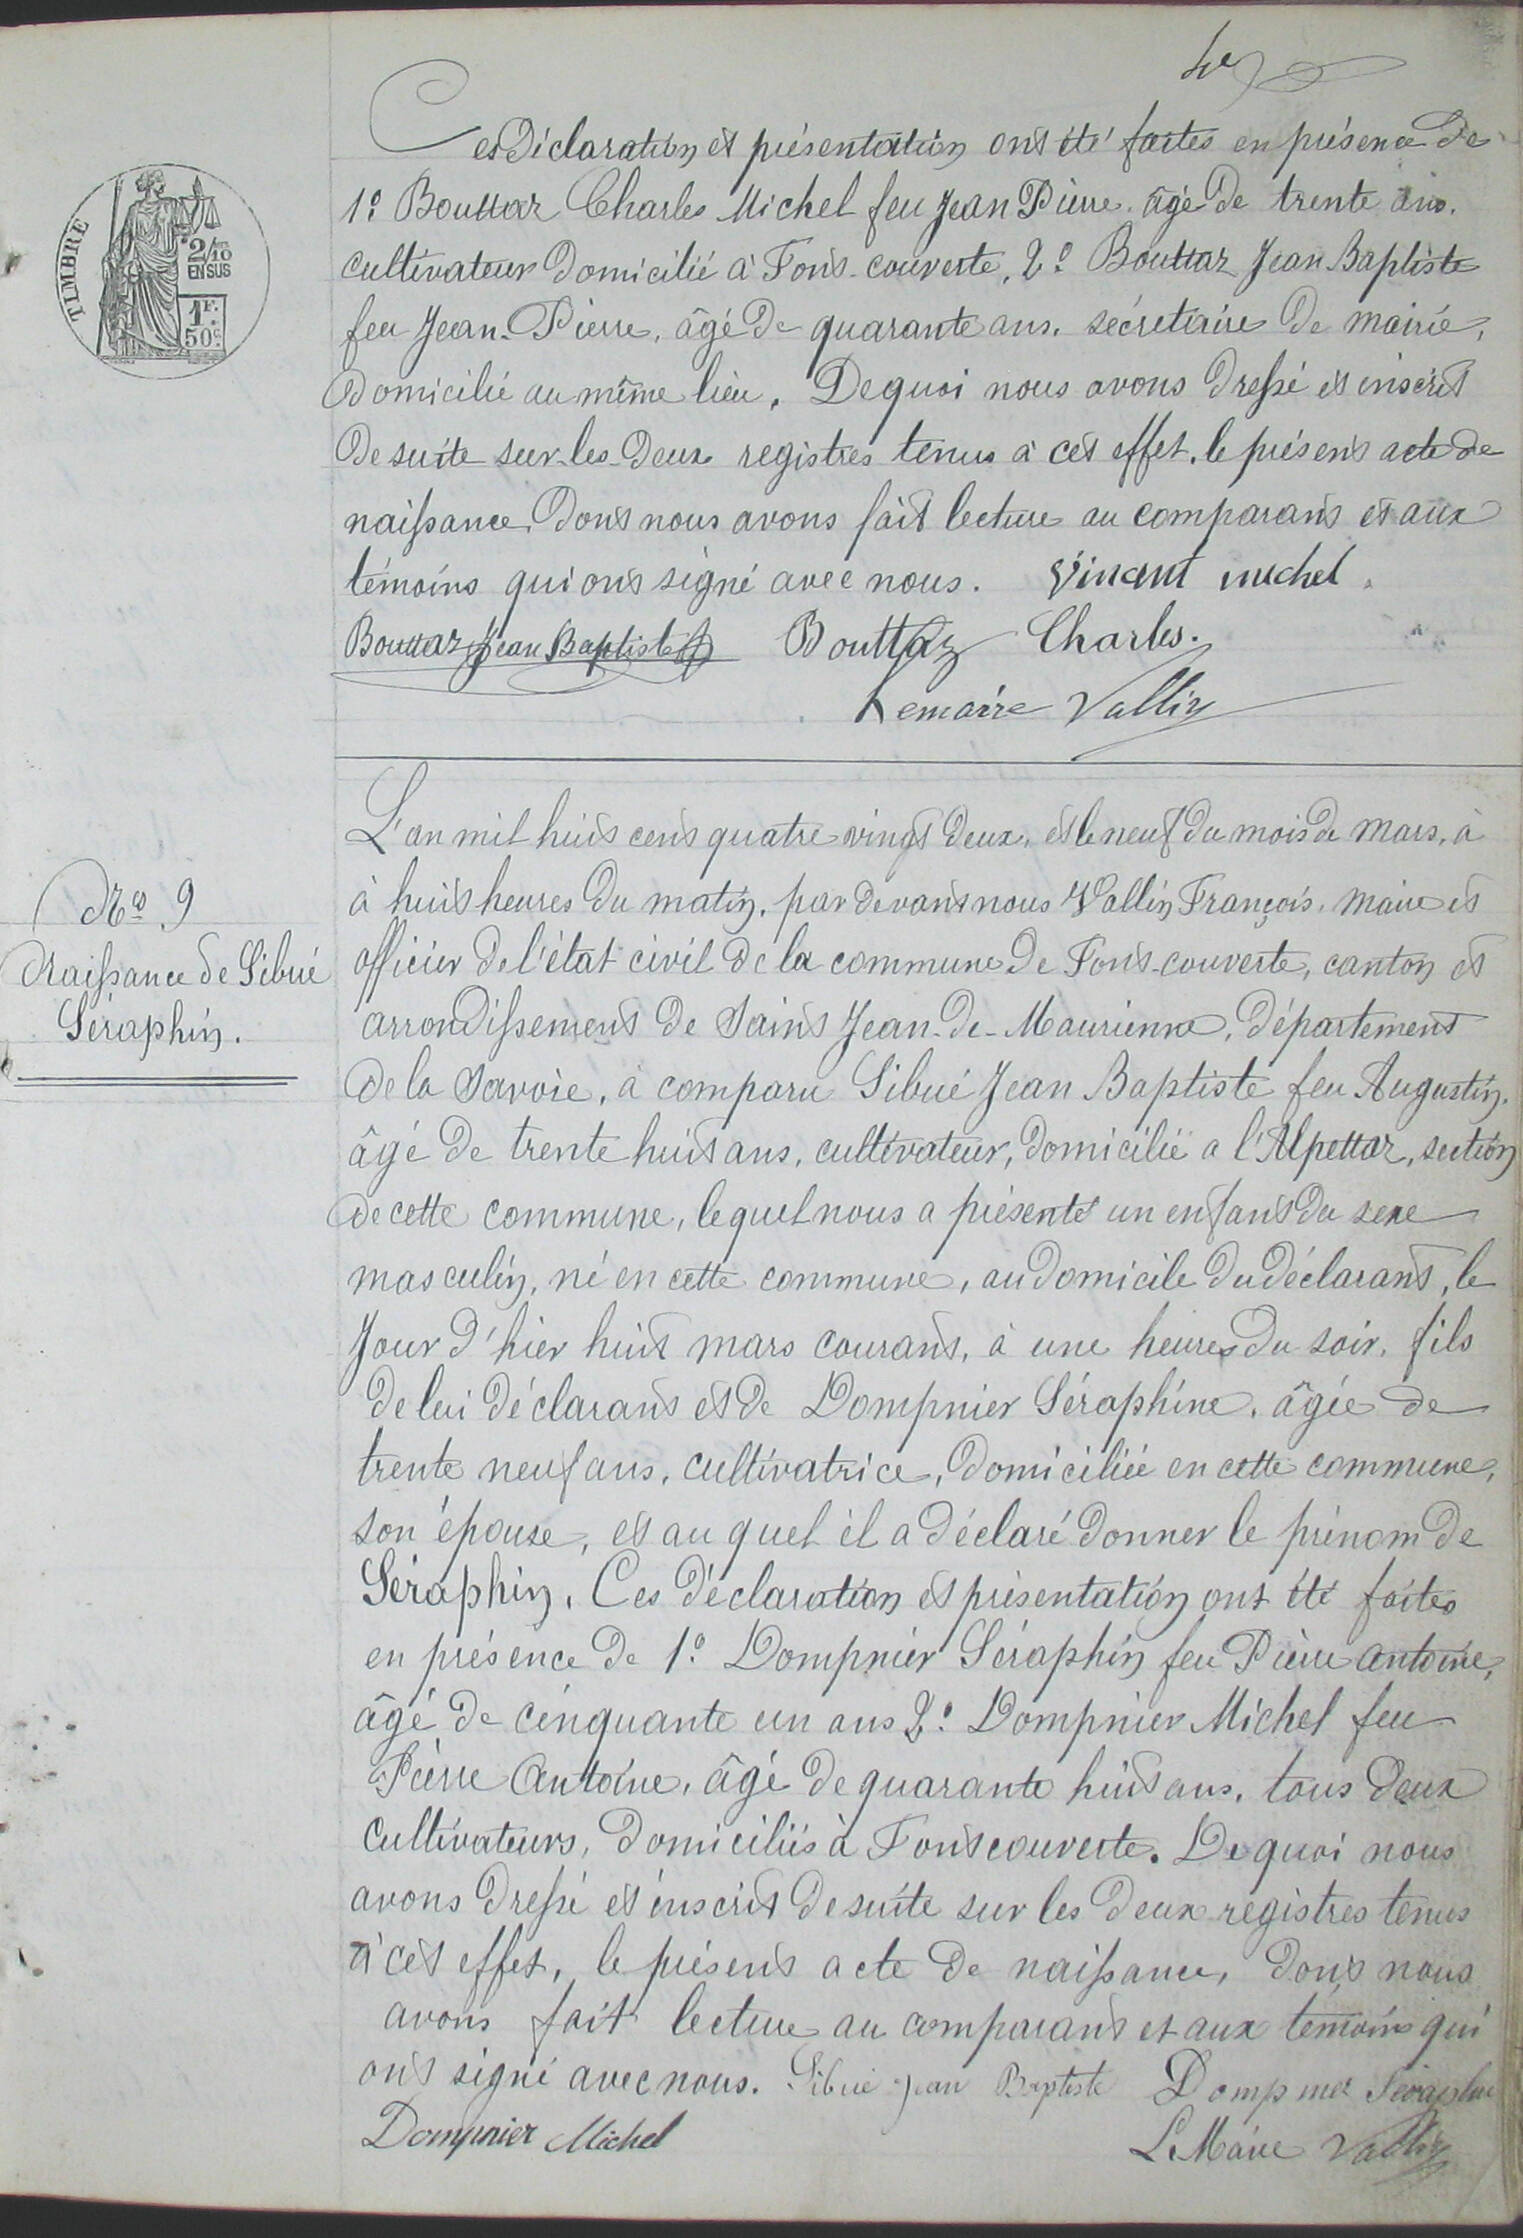 4e
Ces déclaration et présentation ont été faites en présence de
1º Bouttaz Charles Michel feu Jean Pierre âgé de trente ans.
cultivateur domicilié à Font-couverte, 2º Bouttaz Jean Baptiste
feu Jean-Pierre, âgé de quarante ans, secrétaire de mairie,
domicilié au même lieu. De quoi nous avons dressé et inscrit
de suite sur les deux registres tenus à cet effet, le présent acte de
naissance, dont nous avons fait lecture au comparant et aux
témoins qui ont signé avec nous. Vincent Michel.
Bouttaz Jean Baptiste Bouttaz Charles.
Lemaire Vallin
TIMBRE
2/10
EN SUS
1F.
50c
L'an mil huit cent quatre vingt deux, et le neuf du mois de mars, à
à huit heures du matin, par devant nous Vallin François, maire et
officier de l'état civil de la commune de Font-couverte, canton et
arrondissement de Saint Jean-de-Maurienne, département
de la Savoie, a comparu Sibué Jean Baptiste feu Augustin,
âgé de trente huit ans, cultivateur, domicilié a l'Alpettaz, section
de cette commune, lequel nous a présenté un enfant du sexe
masculin, né en cette commune, au domicile du déclarant, le
jour d'hier huit mars courant, à une heures du soir, fils
de lui déclarant et de Dompnier Séraphine, âgée de
trente neuf ans, cultivatrice, domiciliée en cette commune,
son épouse, et au quel il a déclaré donner le prénom de
Séraphin. Ces déclaration et présentation ont été faites
en présence de 1º Dompnier Séraphin feu Pierre Antoine,
âgé de cinquante un ans 2º Dompnier Michel feu
Pierre Antoine, âgé de quarante huit ans, tous deux
cultivateurs, domiciliés à Fontcouverte. De quoi nous
avons dressé et inscrit de suite sur les deux registres tenus
à cet effet, le présent acte de naissance, dont nous
avons fait lecture au comparant et aux témoins qui
ont signé avec nous. Sibué Jean Baptiste Dompnier Séraphin
Dompnier Michel Le Maire Vallin
No 9
Naissance de Sibué
Séraphin.